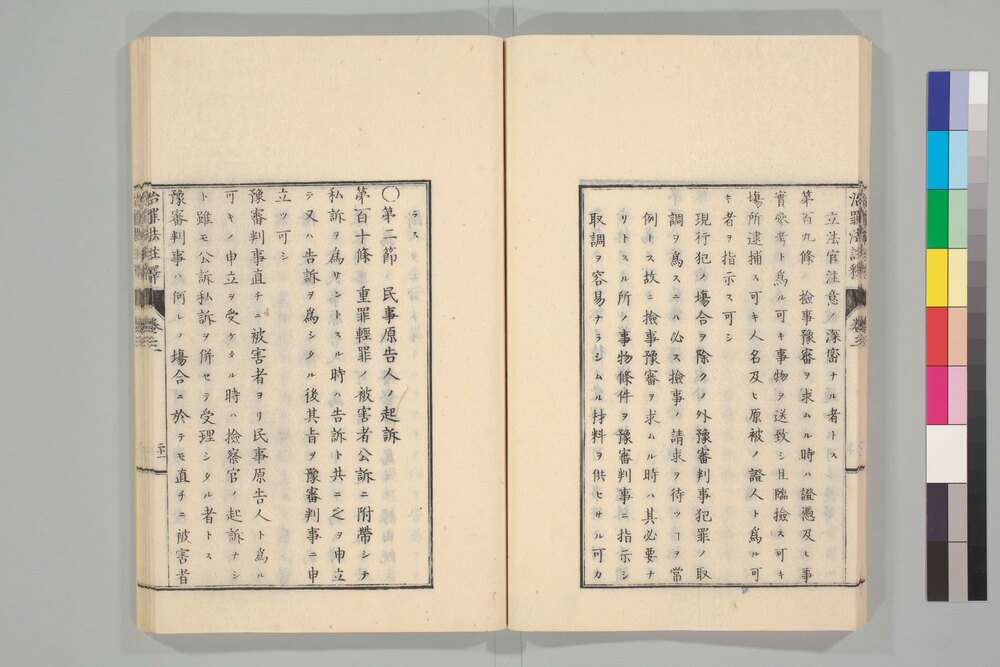 立法官注意ノ深密ナル者トス
第百九條 撿事豫審ヲ求ムル時ハ證憑及ヒ事
實參考ト爲ル可キ事物ヲ送致シ且臨撿ス可キ
塲所逮捕ス可キ人名及ヒ原被ノ證人ト爲ル可
キ者ヲ指示ス可シ
現行犯ノ塲合ヲ除クノ外豫審判事犯罪ノ取
調ヲ爲スニハ必ス撿事ノ請求ヲ待ツヿヲ常
例トス故ニ撿事豫審ヲ求ムル時ハ其必要ナ
リトスル所ノ事物條件ヲ豫審判事ニ指示シ
取調ヲ容易ナラシムル材料ヲ供セサル可カ
ラス
〇第二節 民事原告人ノ起訴
第百十條 重罪輕罪ノ被害者公訴ニ附帶シテ
私訴ヲ爲サントスル時ハ告訴ト共ニ之ヲ申立
テ又ハ告訴ヲ爲シタル後其旨ヲ豫審判事ニ申
立ツ可シ
豫審判事直チニ被害者ヨリ民事原告人ト爲ル
可キノ申立ヲ受ケタル時ハ撿察官ノ起訴ナシ
ト雖モ公訴私訴ヲ併セテ受理シタル者トス
豫審判事ハ何レノ塲合ニ於テモ直チニ被害者
治罪法註釋 卷之二